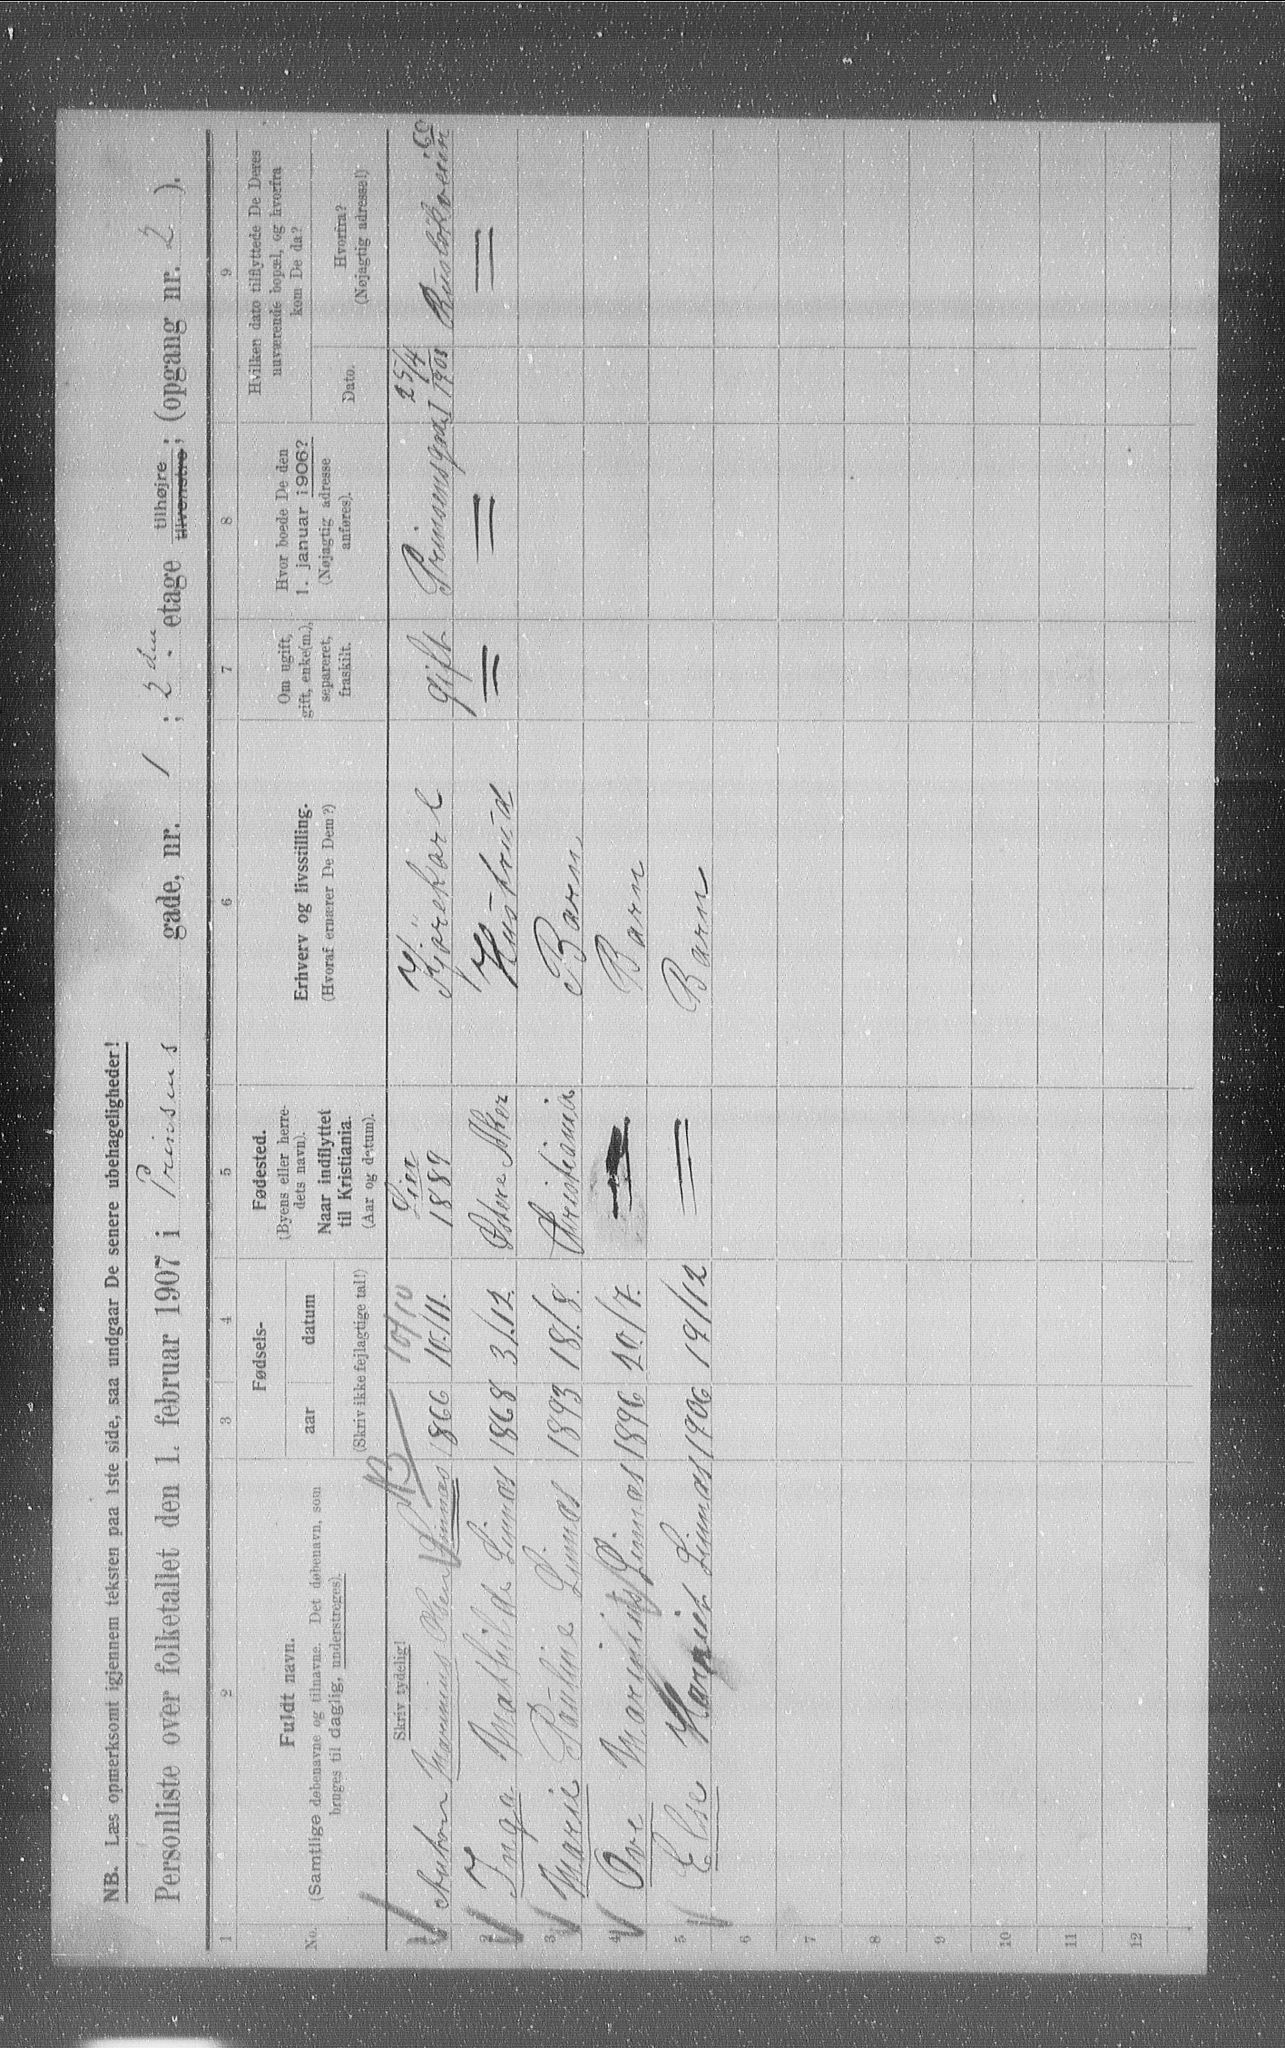 NB. Læs opmerksomt igjennem teksten paa 1ste side, saa undgaar De senere ubehageligheder!
Personliste over folketallet den 1. februar 1907 i Prinsens gade, nr. 1 ; 2den . etage tilhøjre ; tilvenstre; (opgang nr. 2 ).
1 2 3 4 5 6 7 8 9
No.
Fuldt navn.
(Samtlige døbenavne og tilnavne. Det døbenavn, som
bruges til daglig, understreges).
Skriv tydelig!
Fødsels-
aar datum
(Skriv ikke fejlagtige tal!)
Fødested.
(Byens eller herre-
dets navn).
Naar indflyttet
til Kristiania.
(Aar og datum).
Erhverv og livsstilling.
(Hvoraf ernærer De Dem?)
Om ugift,
gift, enke(m.),
separeret,
fraskilt.
Hvor boede De den
1. januar 1906?
(Nøjagtig adresse
anføres).
Hvilken dato tilflyttede De Deres
nuværende bopæl, og hvorfra
kom De da?
Dato.
Hvorfra?
(Nøjagtig adresse!)
NB 10/10
Anton Marinius Olsen Linnæs 1866 10/11. Lier 1889 Kjørekarl gift Prinsensgad 1 25/4 1905 Ruseløkveien 60
2 Inga Mathilde Linnæs 1868 3/12. Østere Aker Hustru = = =
3 Marie Pauline Linnæs 1893 18/8. Christiania Barn
4 Ove Marinius Linnæs 1896 20/7. = Barn
5 Else Harriet Linnæs 1906 19/12 = Barn
6
7
8
9
10
11
12